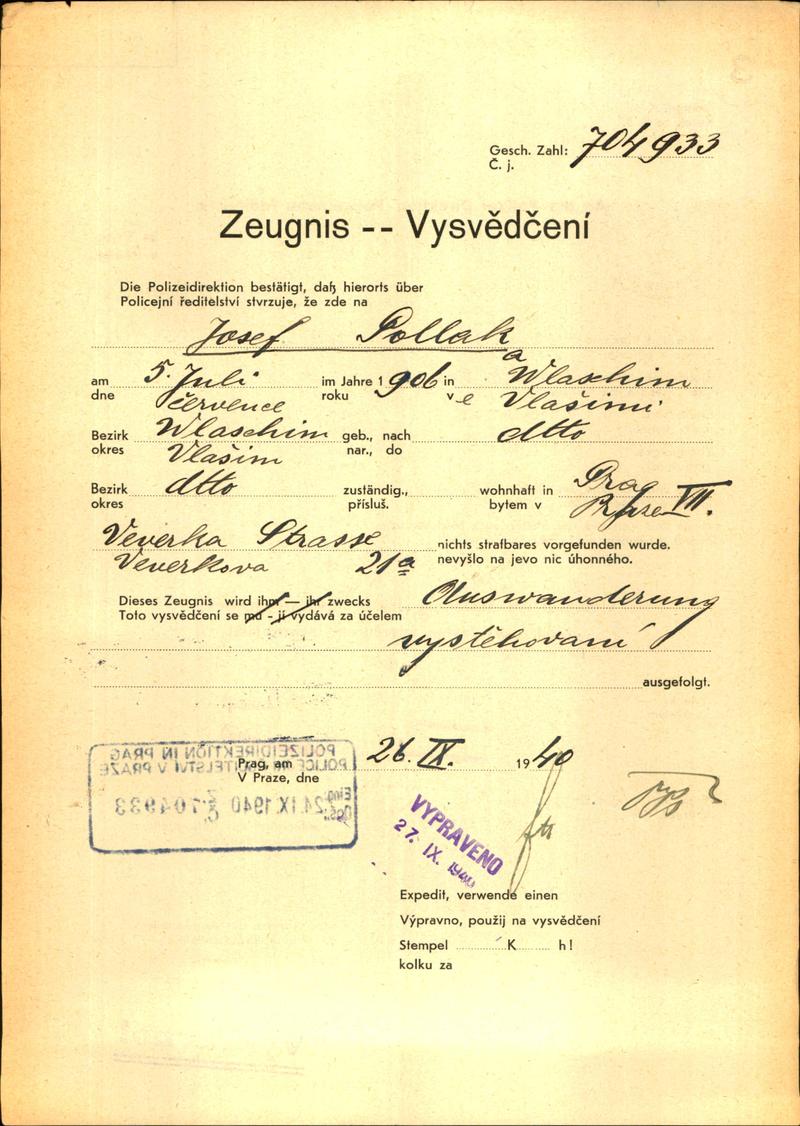 Gesch. Zahl: 704933
Č. j.
Zeugnis -- Vysvědčení
Die Polizeidirektion bestätigt, daß hierorts über
Policejní ředitelství stvrzuje, že zde na
Josef Pollak
am 5. Juli im Jahre 1906 in Wlaschim
dne července roku v e Vlašimi
Bezirk Wlaschim geb., nach dtto
okres Vlašim nar., do
Bezirk dtto zuständig., wohnhaft in Prag VII.
okres přísluš. bytem v Praze
Veverka Strasse nichts strafbares vorgefunden wurde.
Veverkova 21a nevyšlo na jevo nic úhonného.
Dieses Zeugnis wird ihm — ihr zwecks Auswanderung
Toto vysvědčení se mu - jí vydává za účelem
vystěhovaní
ausgefolgt.
POLIZEIDIREKTION IN PRAG
POLICEJNÍ ŘEDITELSTVÍ V PRAZE
Prag, am 26. IX. 1940
V Praze, dne
Eing.
Doš.: 24.IX.1940 704933
VYPRAVENO
27. IX. 1940
Expedit, verwende einen
Výpravno, použij na vysvědčení
Stempel K h!
kolku za